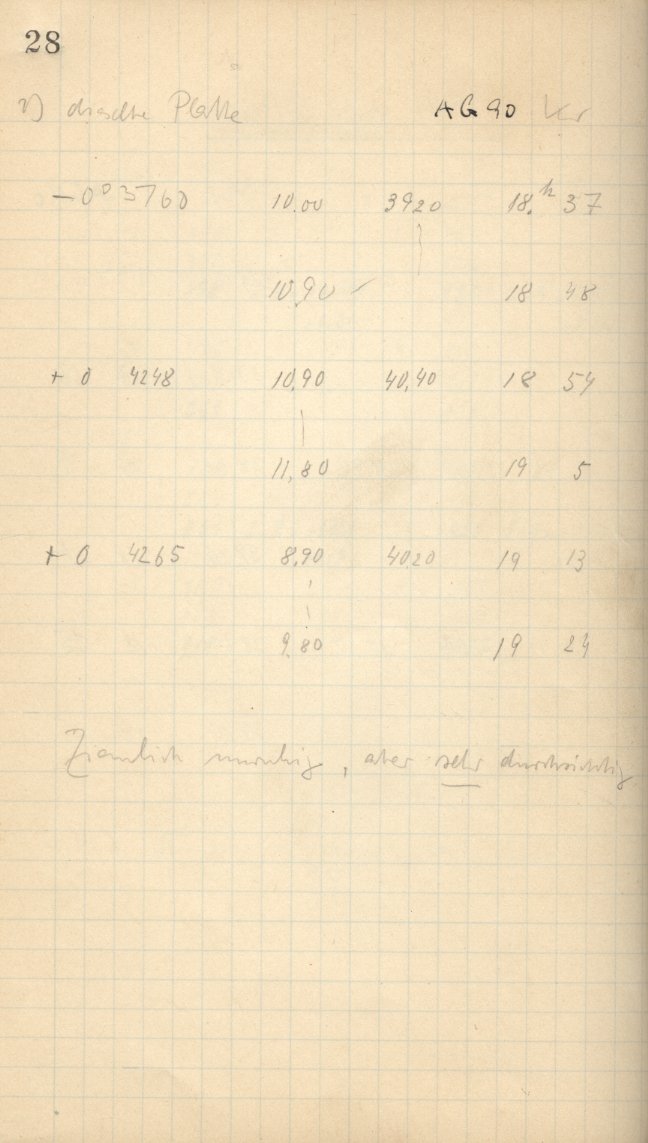 28
2) dieselbe Platte AG 90
— 0° 3760 10.00 3920 18.h 37
10,90 18 48
+ 0 4248 10,90 40,40 18 54
11,80 19 5
+ 0 4265 8,90 4020 19 13
9,80 19 24
Ziemlich unruhig, aber sehr durchsichtig